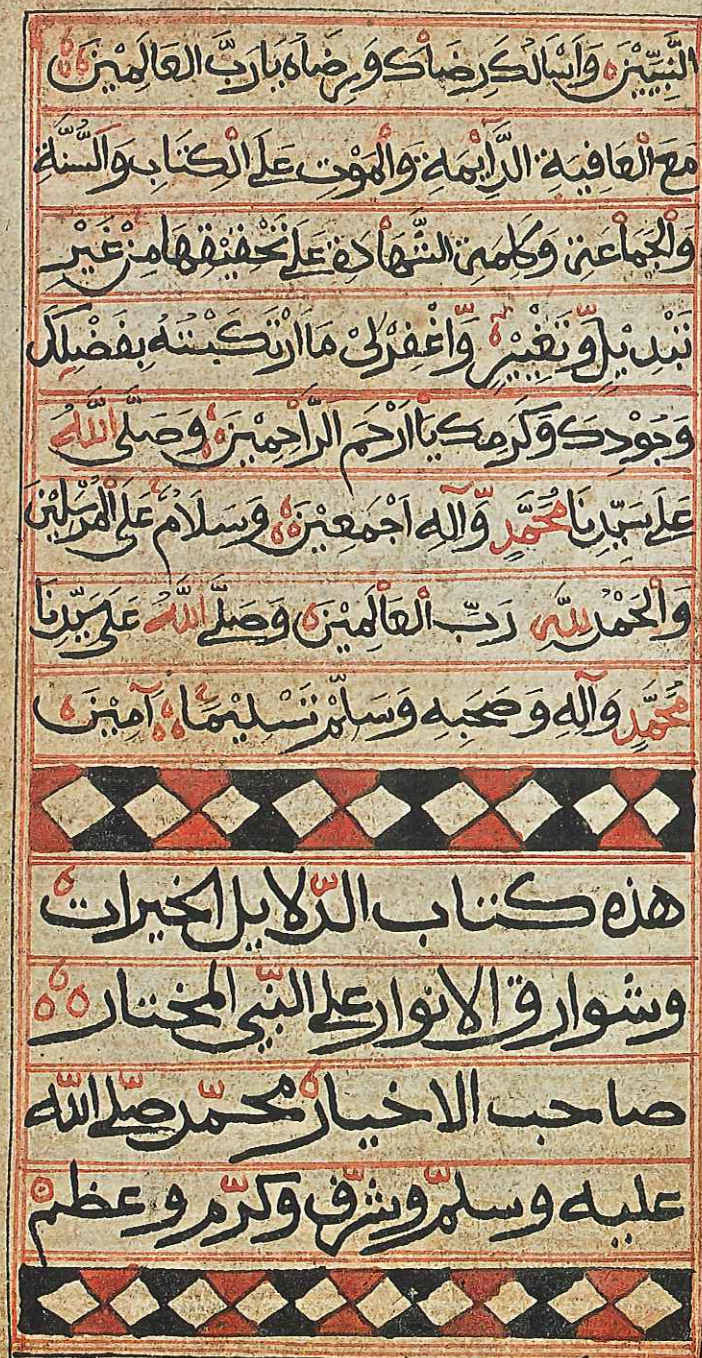 النَّبِيِّيْنَ وَاَسْاَلُكَ رِضَاكَ وَرِضَاهُ يَارَبَّ الْعَالَمِيْنَ
مَعَ الْعَافِيَةِ الدَّايِمَةِ وَالْمَوْتِ عَلَى الْكِتَابِ وَالسُّنَّةِ
وَالْجَمَاعَةِ وَكَلِمَةِ الشَّهَادَةِ عَلَى تَحْقِيْقِهَا مِنْ غَيْرِ
تَبْدِيْلٍ وَّتَغْيِيْرٍ وَّاغْفِرْلِيْ مَا ارْتَكَبْتُهُ بِفَضْلِكَ
وَجُوْدِكَ وَكَرَمِكَ يَا اَرْحَمَ الرَّاحِمِيْنَ وَصَلَّى اللّٰهُ
عَلَى سَيِّدِنَا مُحَمَّدٍ وَّآلِهِ اَجْمَعِيْنَ وَسَلَامٌ عَلَى الْمُرْسَلِيْنَ
وَالْحَمْدُ لِلّٰهِ رَبِّ الْعَالَمِيْنَ وَصَلَّى اللّٰهُ عَلَى سَيِّدِنَا
مُحَمَّدٍ وَآلِهِ وَصَحْبِهِ وَسَلَّمْ تَسْلِيْمًا آمِيْنَ
هذه كتاب الدّلايل الخيرات
وشوارق الانوار على النّبي المختار
صاحب الاخيار محمّد صلّى اللّه
عليه وسلّم وشرّف وكرّم وعظم